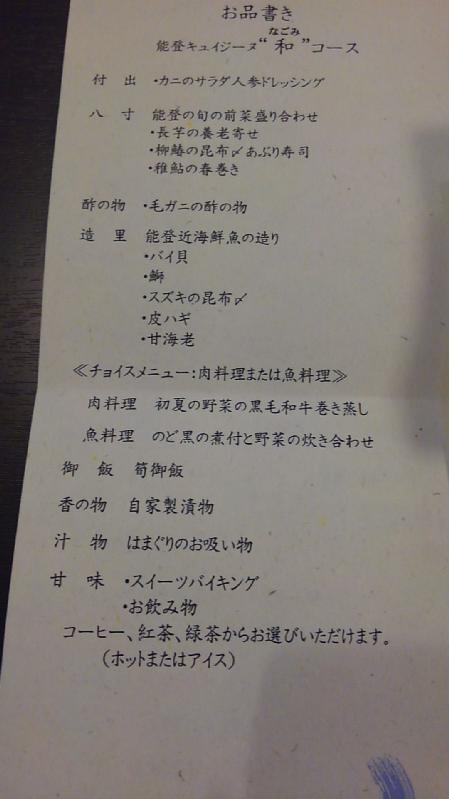 お品書き
なごみ
能登キュイジーヌ“和”コース
付 出 ・カニのサラダ人参ドレッシング
八 寸 能登の旬の前菜盛り合わせ
・長芋の養老寄せ
・柳鰆の昆布〆あぶり寿司
・稚鮎の春巻き
酢の物 ・毛ガニの酢の物
造 里 能登近海鮮魚の造り
・バイ貝
・鰤
・スズキの昆布〆
・皮ハギ
・甘海老
≪チョイスメニュー:肉料理または魚料理≫
肉料理 初夏の野菜の黒毛和牛巻き蒸し
魚料理 のど黒の煮付と野菜の炊き合わせ
御 飯 筍御飯
香の物 自家製漬物
汁 物 はまぐりのお吸い物
甘 味 ・スイーツバイキング
・お飲み物
コーヒー、紅茶、緑茶からお選びいただけます。
(ホットまたはアイス)